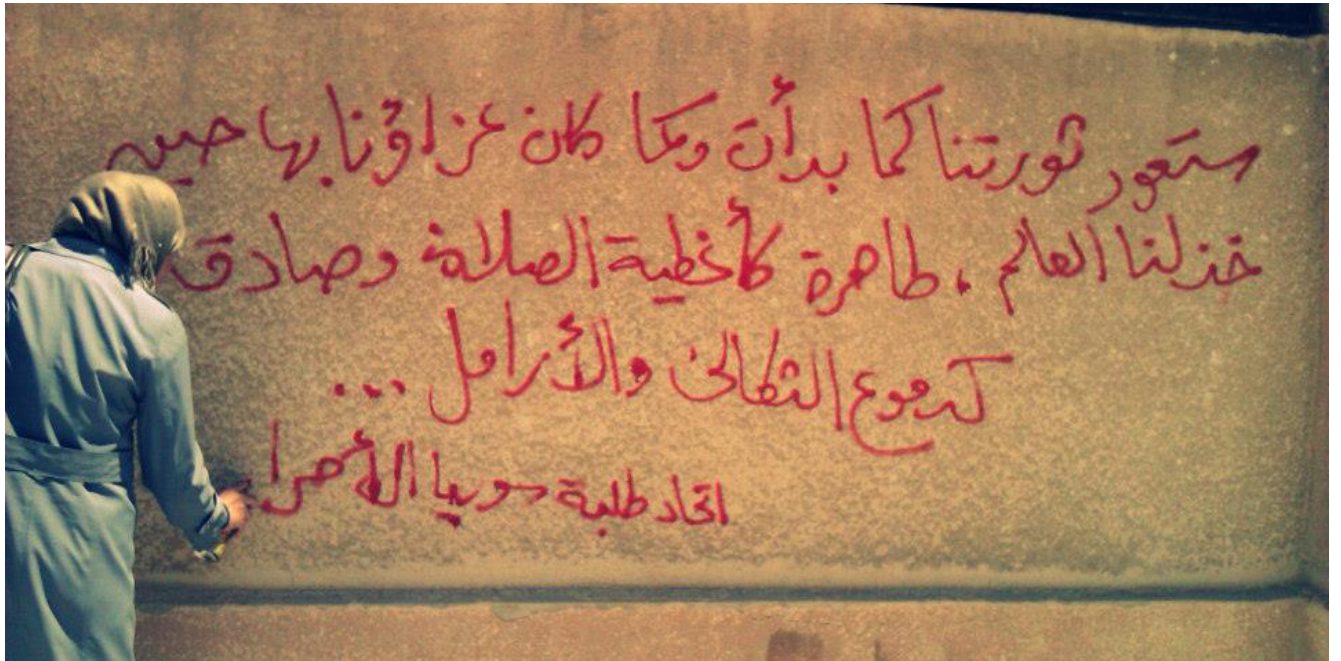 ستعود ثورتنا كما بدأت وكما كان عزاؤنا بها حين
خذلنا العالم ، طاهرة كأغطية الصلاة وصادق
كدموع الثكالى والأرامل ...
اتحاد طلبة سوريا الأحرا